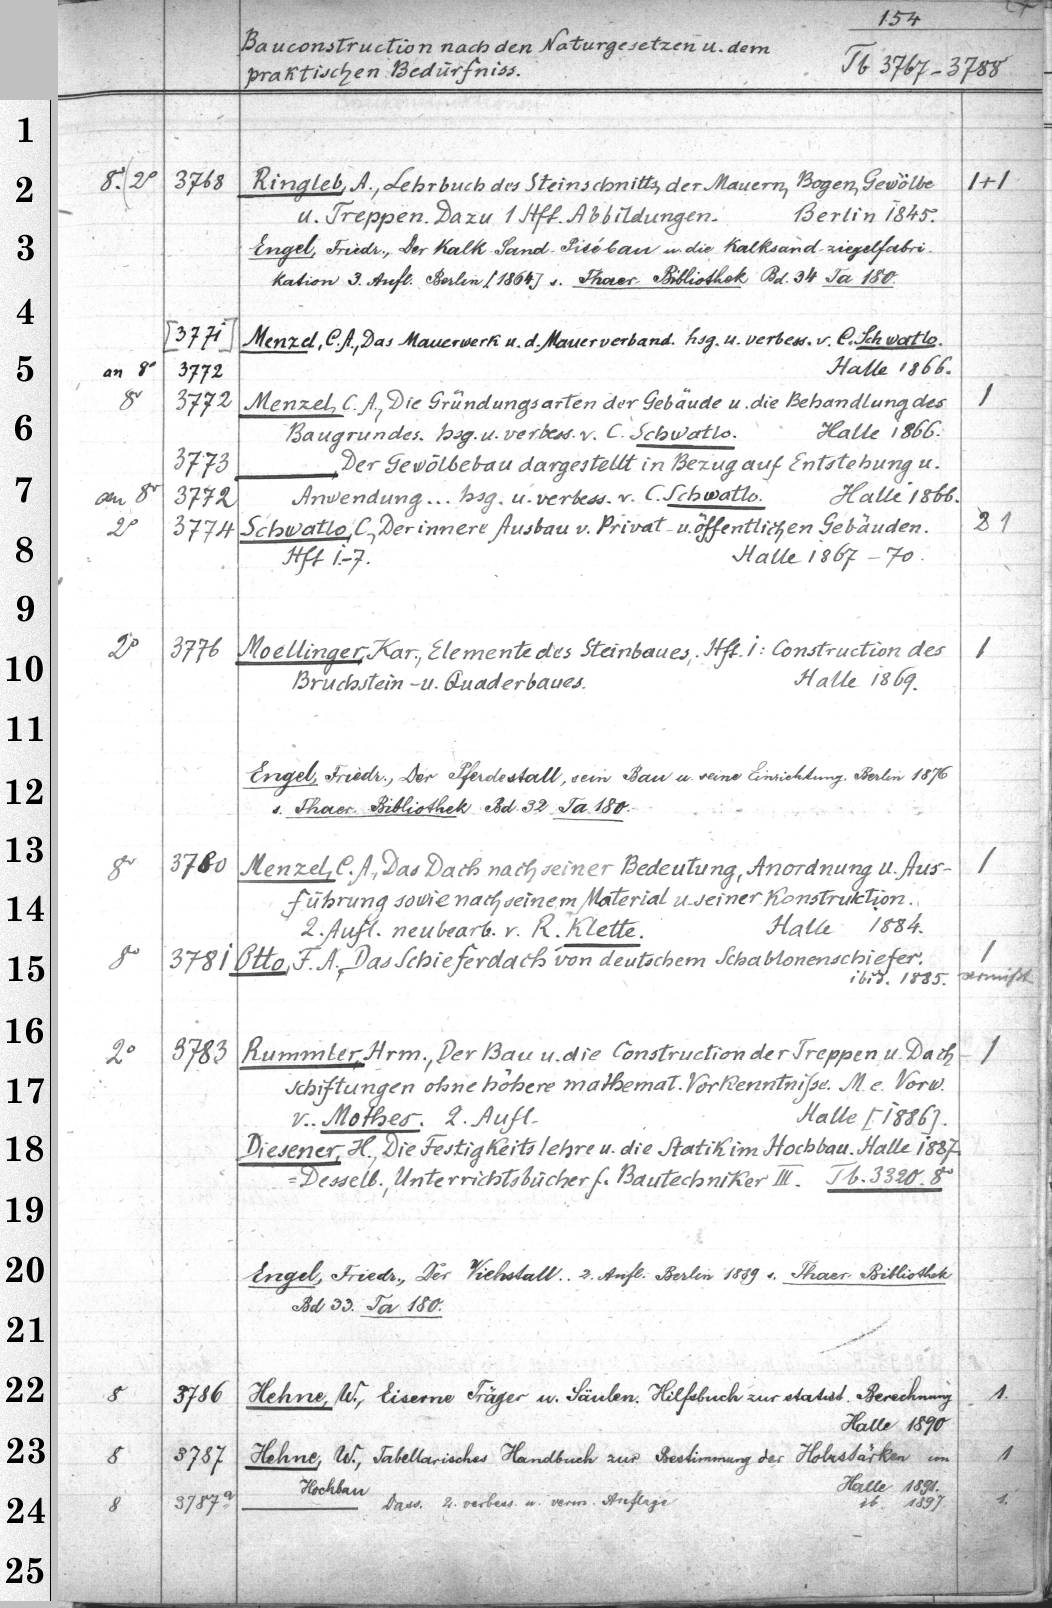 154
Bauconstruction nach den Naturgesetzen u. dem
praktischen Bedürfniss.
Tb 3767-3788
1
2
3
4
5
6
7
8
9
10
11
12
13
14
15
16
17
18
19
20
21
22
23
24
25
8º. 2º 3768 Ringleb, A., Lehrbuch des Steinschnitts, der Mauern, Bogen, Gewölbe 1+1
u. Treppen. Dazu 1 Hft. Abbildungen. Berlin 1845.
Engel, Friedr., Der Kalk Sand Pisébau u. die Kalksand-ziegelfabri-
kation 3. Aufl. Berlin [1864] s. Thaer Bibliothek Bd. 34 Ta 180.
[3771] Menzel, C. A., Das Mauerwerk u. d. Mauerverband. hsg. u. verbess. v. C. Schwatlo.
an 8º 3772 Halle 1866.
8º 3772 Menzel, C. A., Die Gründungsarten der Gebäude u. die Behandlung des 1
Baugrundes. hsg. u. verbess. v. C. Schwatlo. Halle 1866.
3773 ———, Der Gewölbebau dargestellt in Bezug auf Entstehung u.
an 8º 3772 Anwendung... hsg. u. verbess. v. C. Schwatlo. Halle 1866.
2º 3774 Schwatlo, C., Der innere Ausbau v. Privat- u. öffentlichen Gebäuden. 1
Hft 1-7. Halle 1867-70.
2º 3776 Moellinger, Kar., Elemente des Steinbaues. Hft. 1: Construction des 1
Bruchstein- u. Quaderbaues. Halle 1869.
Engel, Friedr., Der Pferdestall, sein Bau u. seine Einrichtung. Berlin 1876
s. Thaer Bibliothek Bd 32 Ta 180.
8º 3780 Menzel, C. A., Das Dach nach seiner Bedeutung, Anordnung u. Aus- 1
führung sowie nach seinem Material u. seiner Konstruktion.
2. Aufl. neubearb. v. R. Klette. Halle 1884.
8º 3781 Otto, F. A., Das Schieferdach von deutschem Schablonenschiefer. 1
ibid. 1885. vermißt
2º 3783 Rummler, Hrm., Der Bau u. die Construction der Treppen u. Dach- 1
schiftungen ohne höhere mathemat. Vorkenntniße. M. e. Vorw.
v.. Mothes. 2. Aufl. Halle [1886].
Diesener, H., Die Festigkeitslehre u. die Statik im Hochbau. Halle 1887.
=Desselb., Unterrichtsbücher f. Bautechniker III. Tb. 3320. 8º
Engel, Friedr., Der Viehstall.. 2. Aufl. Berlin 1889 s. Thaer Bibliothek
Bd 33. Ta 180.
8 3786 Hehne, W., Eiserne Träger u. Säulen. Hilfsbuch zur statist. Berechnung 1.
Halle 1890
8 3787 Hehne, W., Tabellarisches Handbuch zur Bestimmung der Holzstärken im 1
Hochbau Halle 1891.
8 3787a ——— Dass. 2. verbess. u. verm. Auflage ib. 1897 1.